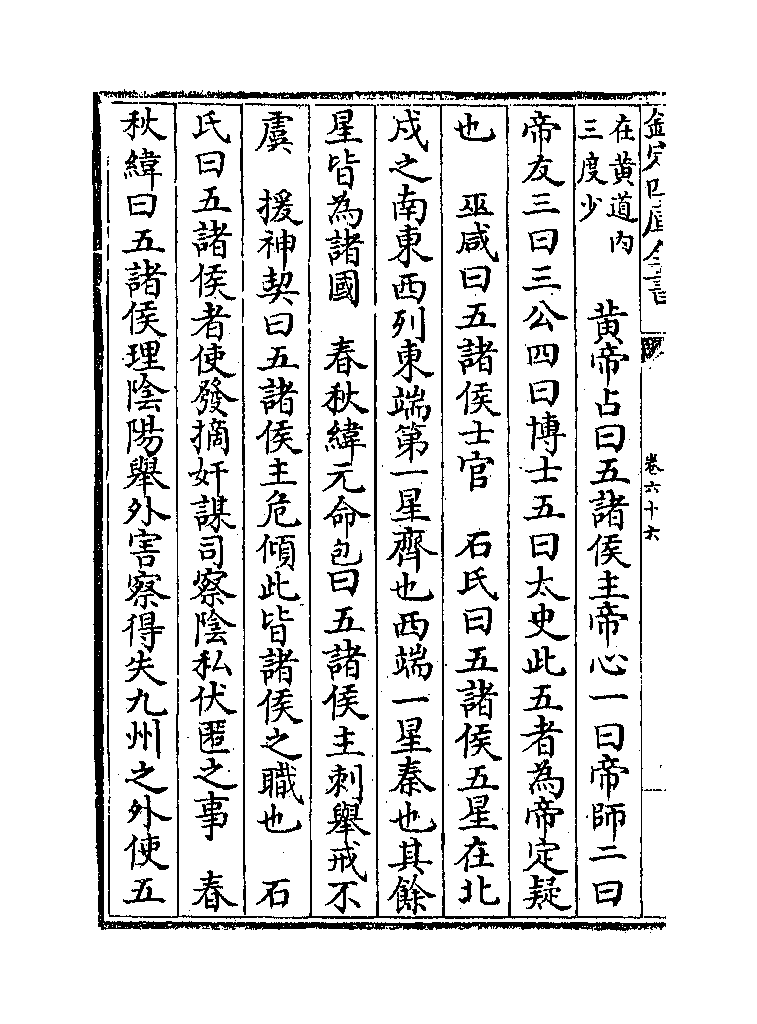 欽定四庫全書
卷六十六
在黄道内
三度少
黄帝占曰五諸侯主帝心一曰帝師二曰
帝友三曰三公四曰博士五曰太史此五者為帝定疑
也　巫咸曰五諸侯士官　石氏曰五諸侯五星在北
戍之南東西列東端第一星齊也西端一星秦也其餘
星皆為諸國　春秋緯元命包曰五諸侯主刺舉戒不
虞　援神契曰五諸侯主危傾此皆諸侯之職也　石
氏曰五諸侯者使發摘奸謀司察陰私伏匿之事　春
秋緯曰五諸侯理陰陽舉外害察得失九州之外使五